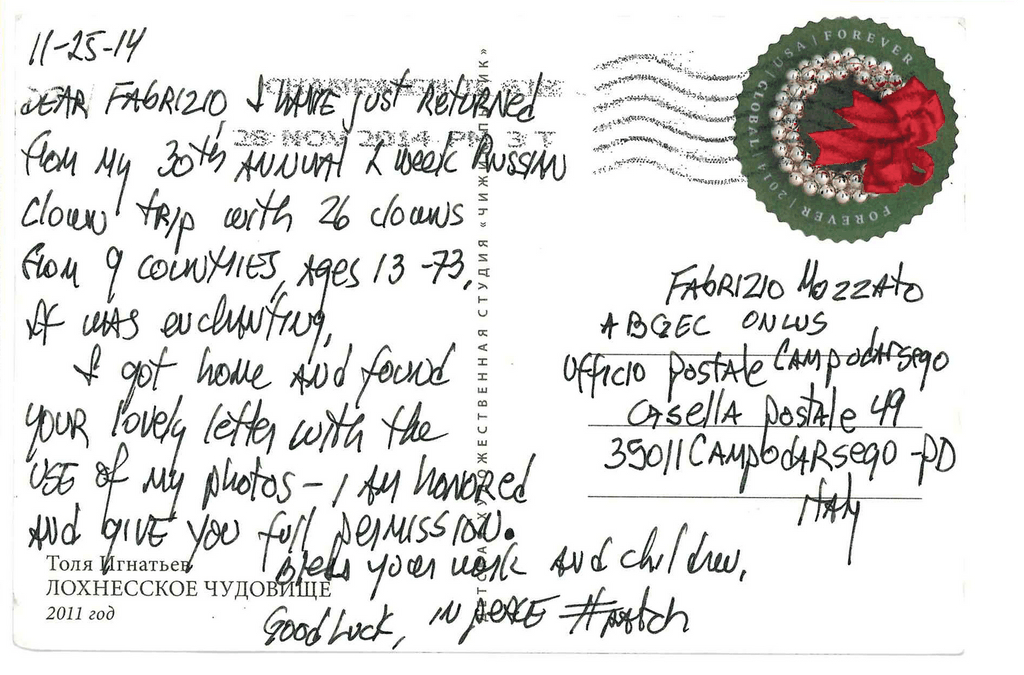 11-25-14
DEAR FABRIZIO, I HAVE just RETURNED
from my 30th ANNUAL 2 week RUSSIAN
clown trip with 26 clowns
from 9 COUNTRIES, Ages 13-73.
It was enchanting.
I got home AND found
YOUR lovely letter with the
USE of my photos - I AM honored
AND GIVE YOU full permission.
Bless your work AND children.
Good Luck, IN PEACE
28 NOV 2014 PM 3 T
USA | FOREVER
GLOBAL
FOREVER
FABRIZIO MOZZATO
ABGEC ONLUS
Ufficio postale CAMPODARSEGO
CASELLA postale 49
35011 CAMPODARSEGO - PD
ITALY
Толя Игнатьев
ЛОХНЕССКОЕ ЧУДОВИЩЕ
2011 год
СТУДИЯ